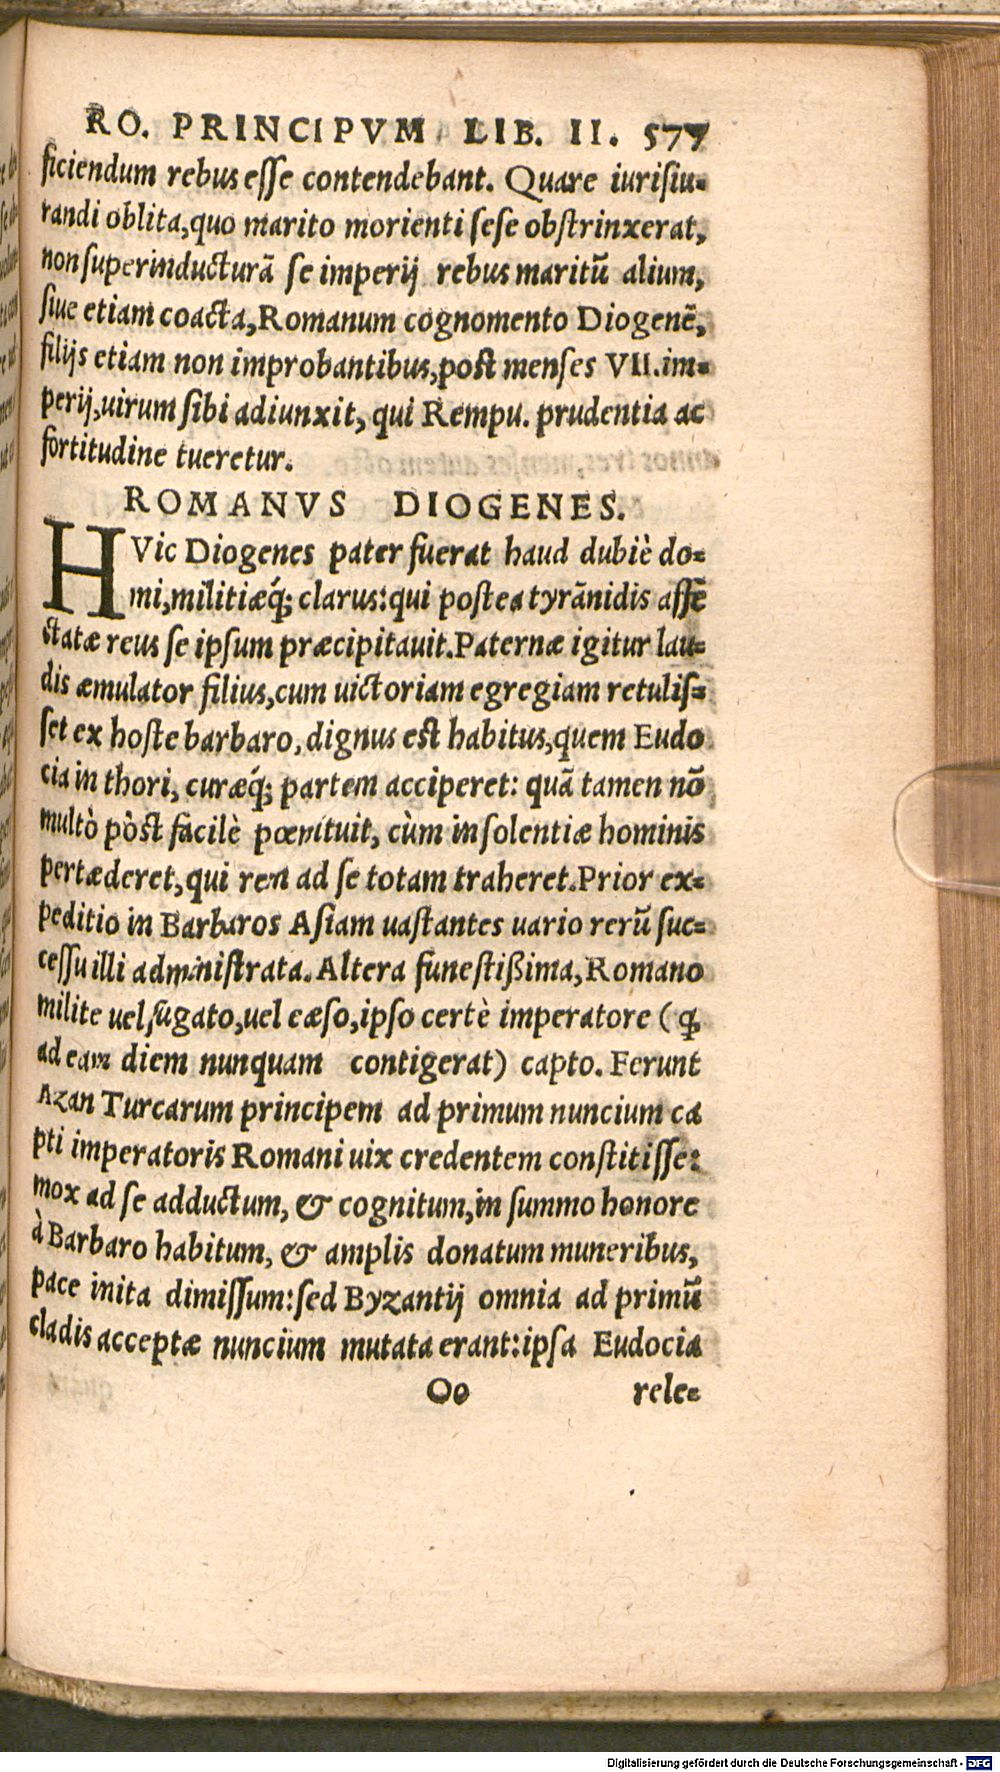 RO. PRINCIPVM LIB. II. 577
ficiendum rebus esse contendebant. Quare iurisiu-
randi oblita, quo marito morienti sese obstrinxerat,
non superinducturã se imperij rebus maritũ alium,
siue etiam coacta, Romanum cognomento Diogenẽ,
filijs etiam non improbantibus, post menses VII. im-
perij, uirum sibi adiunxit, qui Rempu. prudentia ac
fortitudine tueretur.
ROMANVS DIOGENES.
HVic Diogenes pater fuerat haud dubiè do-
mi, militiæq́; clarus: qui postea tyrãnidis affẽ
ctatæ reus se ipsum præcipitauit. Paternæ igitur lau-
dis æmulator filius, cum uictoriam egregiam retulis-
set ex hoste barbaro, dignus est habitus, quem Eudo
cia in thori, curæq́; partem acciperet: quã tamen nõ
multò pòst facilè pœnituit, cùm insolentiæ hominis
pertæderet, qui rem ad se totam traheret. Prior ex-
peditio in Barbaros Asiam uastantes uario rerũ suc-
cessu illi administrata. Altera funestißima, Romano
milite uel fugato, uel cæso, ipso certè imperatore (ꝙ
ad eam diem nunquam contigerat) capto. Ferunt
Azan Turcarum principem ad primum nuncium ca
pti imperatoris Romani uix credentem constitisse:
mox ad se adductum, & cognitum, in summo honore
à Barbaro habitum, & amplis donatum muneribus,
pace inita dimissum: sed Byzantij omnia ad primũ
cladis acceptæ nuncium mutata erant: ipsa Eudocia
Oo rele-
Digitalisierung gefördert durch die Deutsche Forschungsgemeinschaft - DFG